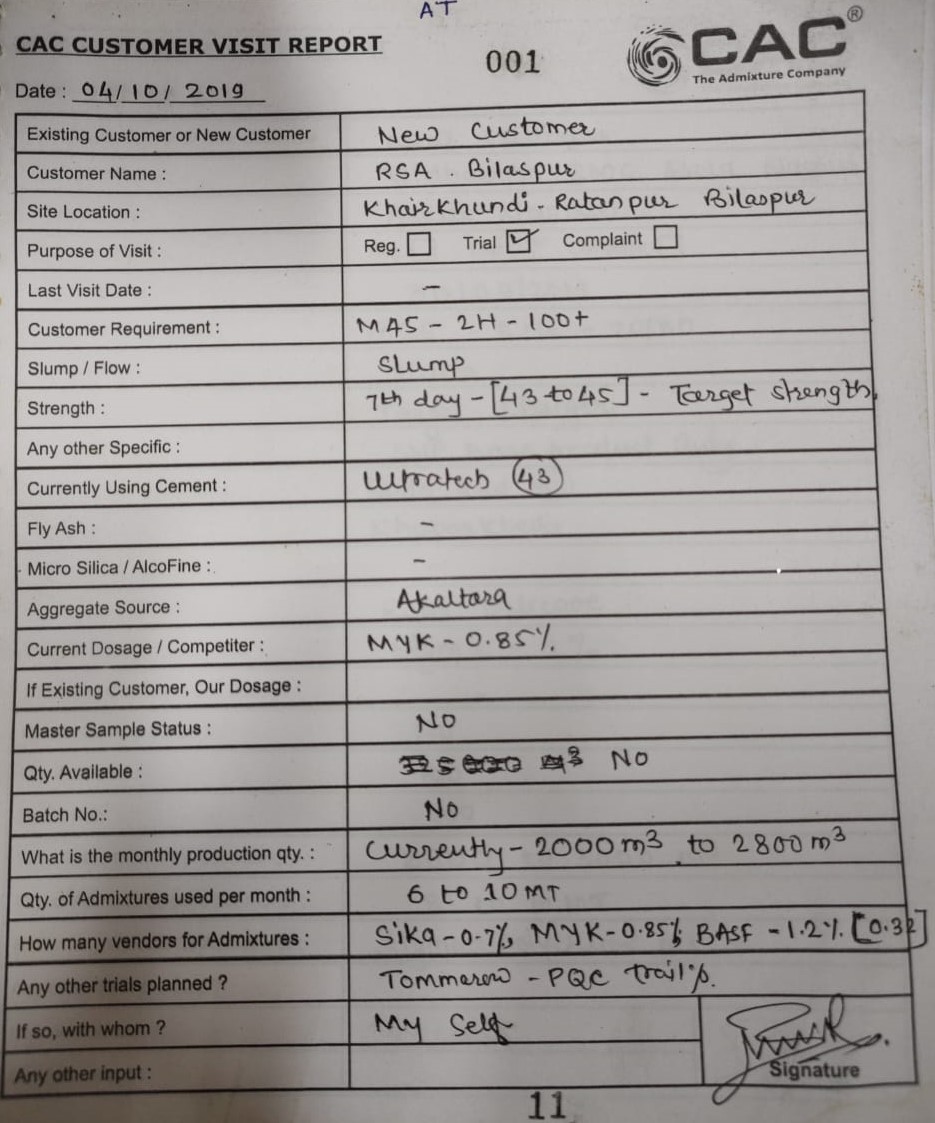 AT
CAC CUSTOMER VISIT REPORT
001
CAC®
The Admixture Company
Date : 04/10/2019
Existing Customer or New Customer New Customer
Customer Name : RSA . Bilaspur
Site Location : Khairkhundi - Ratanpur Bilaspur
Purpose of Visit : Reg. Trial Complaint
Last Visit Date : -
Customer Requirement : M45 - 2H - 100+
Slump / Flow : Slump
Strength : 7th day - [43 to 45] - Target strength
Any other Specific :
Currently Using Cement : Ultratech 43
Fly Ash : -
Micro Silica / AlcoFine : -
Aggregate Source : Akaltara
Current Dosage / Competiter : MYK - 0.85%
If Existing Customer, Our Dosage :
Master Sample Status : NO
Qty. Available : NO
Batch No.: No
What is the monthly production qty. : Currently - 2000 m³ to 2800 m³
Qty. of Admixtures used per month : 6 to 10 MT
How many vendors for Admixtures : Sika - 0.7%, MYK - 0.85% BASF - 1.2% [0.32]
Any other trials planned ? Tommarow - PQC
If so, with whom ? My Self
Any other input :
Signature
11